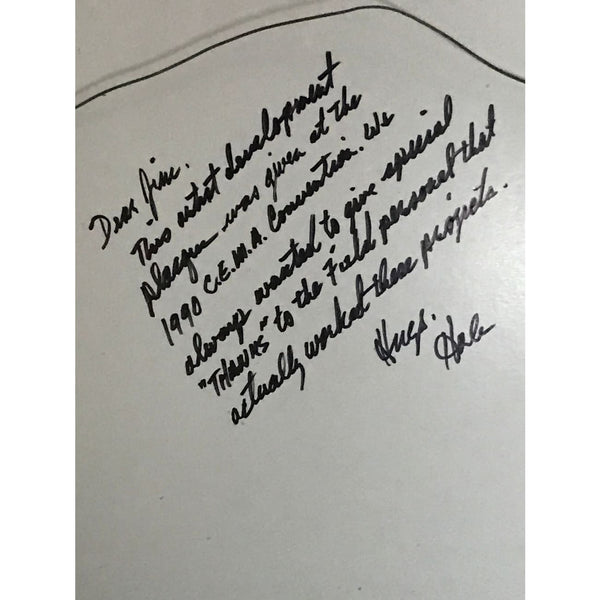 Dear Jim.
This artist development
plaque was given at the
1990 C.E.M.A. Convention. We
always wanted to give special
"THANKS" to the Field personal that
actually worked these projects.
Hugs.
Hale